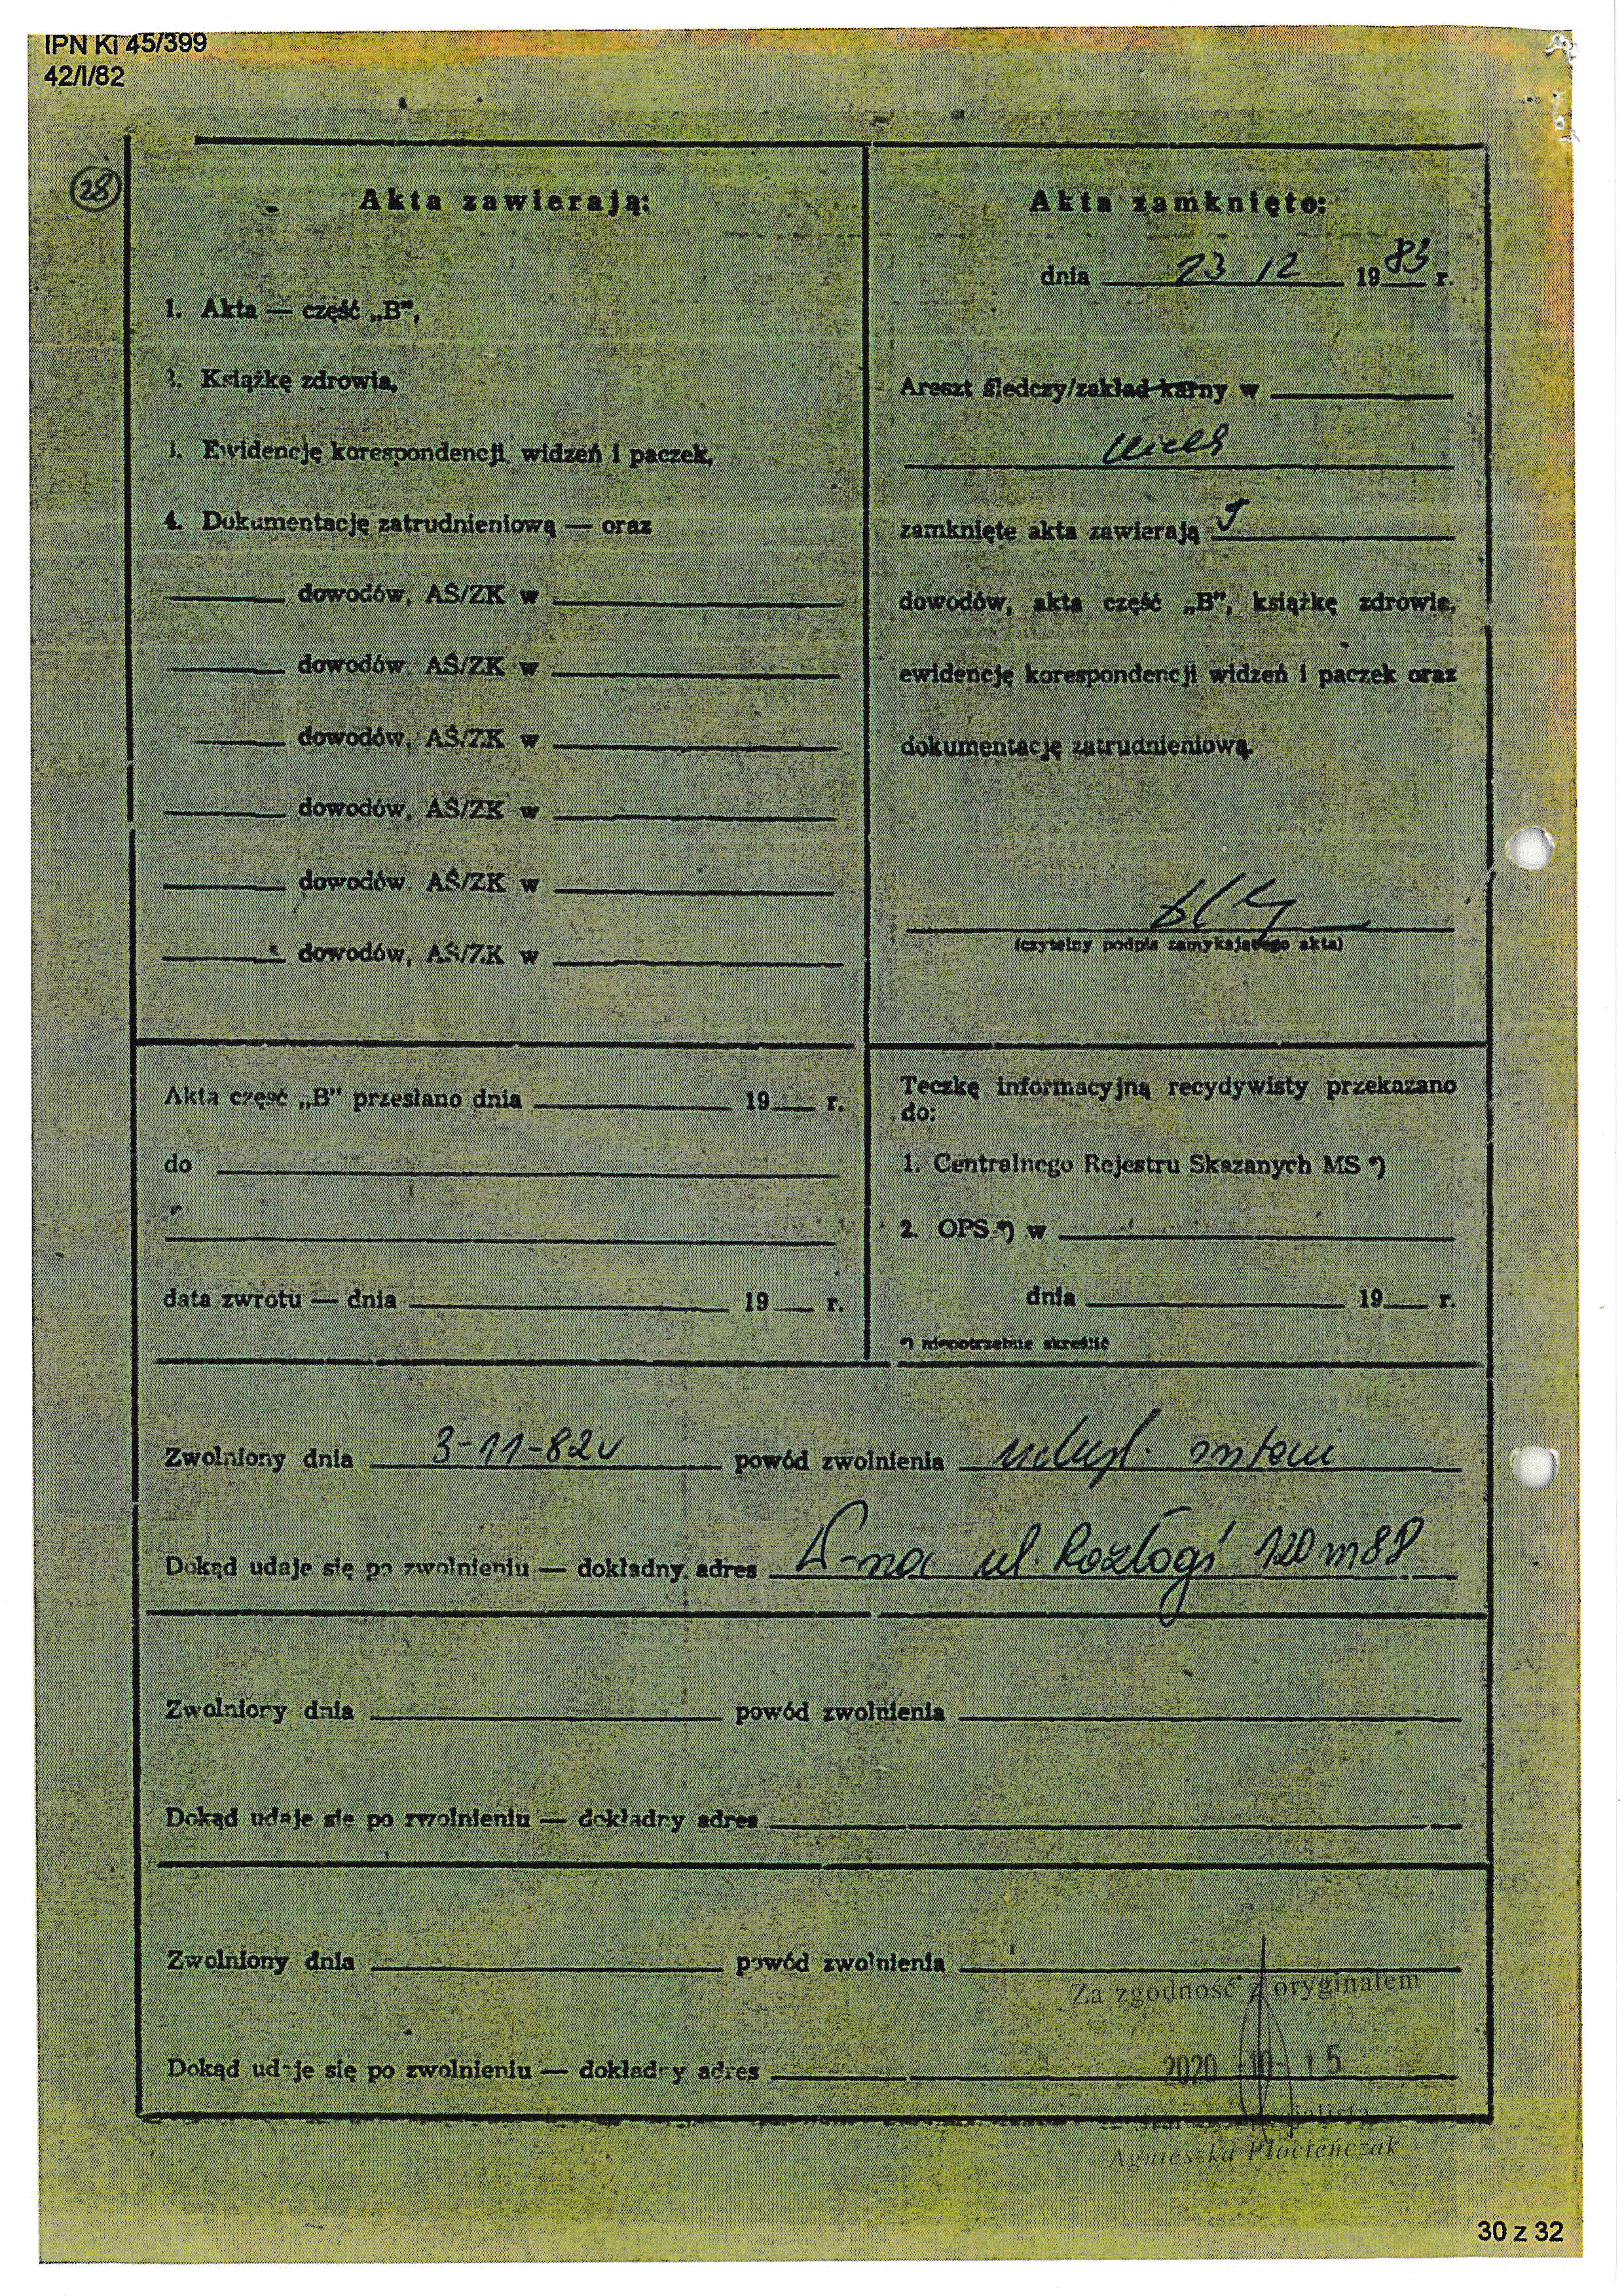 IPN Ki 45/399
42/I/82
28
Akta zawierają:
1. Akta — część „B”,
2. Książkę zdrowia,
3. Ewidencję korespondencji, widzeń i paczek,
4. Dokumentację zatrudnieniową — oraz
dowodów, AŚ/ZK w
dowodów, AŚ/ZK w
dowodów, AŚ/ZK w
dowodów, AŚ/ZK w
dowodów, AŚ/ZK w
dowodów, AŚ/ZK w
Akta zamknięto:
dnia 23 12 1983 r.
Areszt śledczy/zakład karny w
zamknięte akta zawierają
dowodów, akta część „B”, książkę zdrowia,
ewidencję korespondencji widzeń i paczek oraz
dokumentację zatrudnieniową.
(czytelny podpis zamykającego akta)
Akta część „B” przesłano dnia 19 r.
do
data zwrotu — dnia 19 r.
Teczkę informacyjną recydywisty przekazano
do:
1. Centralnego Rejestru Skazanych MS *)
2. OPS *) w
dnia 19 r.
*) niepotrzebnie skreślić
Zwolniony dnia 3-11-82 powód zwolnienia
Dokąd udaje się po zwolnieniu — dokładny adres ul. Rozłogi
Zwolniony dnia powód zwolnienia
Dokąd udaje się po zwolnieniu — dokładny adres
Zwolniony dnia powód zwolnienia
Za zgodność z oryginałem
Dokąd udaje się po zwolnieniu — dokładny adres
2020 -10- 15
Agnieszka Płocieńczak
30 z 32